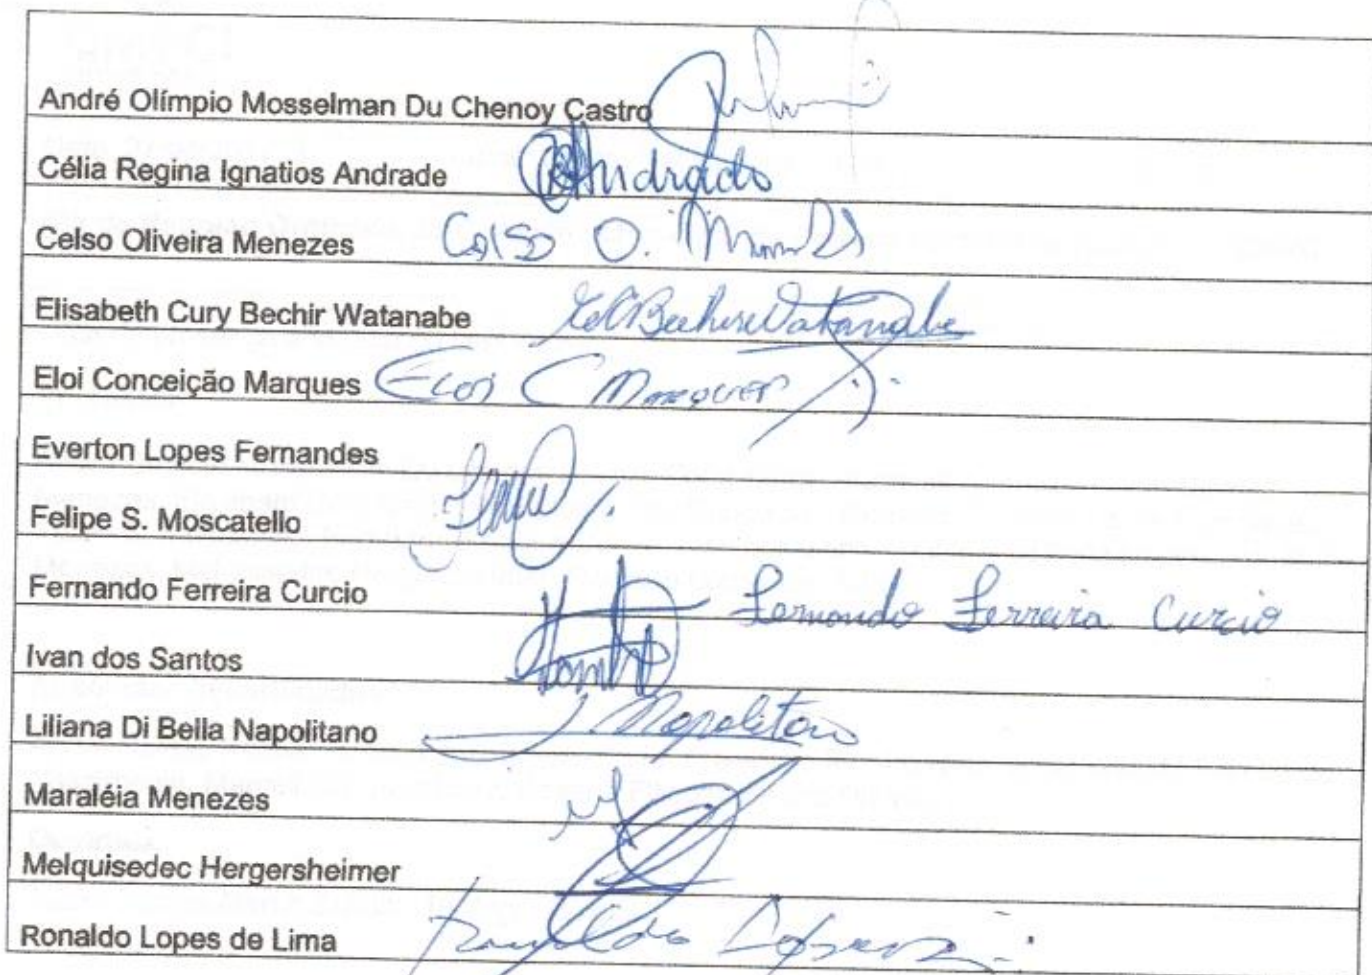 André Olímpio Mosselman Du Chenoy Castro
Célia Regina Ignatios Andrade Andrade
Celso Oliveira Menezes Celso O. Menezes
Elisabeth Cury Bechir Watanabe ECBechirWatanabe
Eloi Conceição Marques Eloi C Marques
Everton Lopes Fernandes
Felipe S. Moscatello
Fernando Ferreira Curcio Fernando Ferreira Curcio
Ivan dos Santos
Liliana Di Bella Napolitano Napolitano
Maraléia Menezes
Melquisedec Hergersheimer
Ronaldo Lopes de Lima Ronaldo